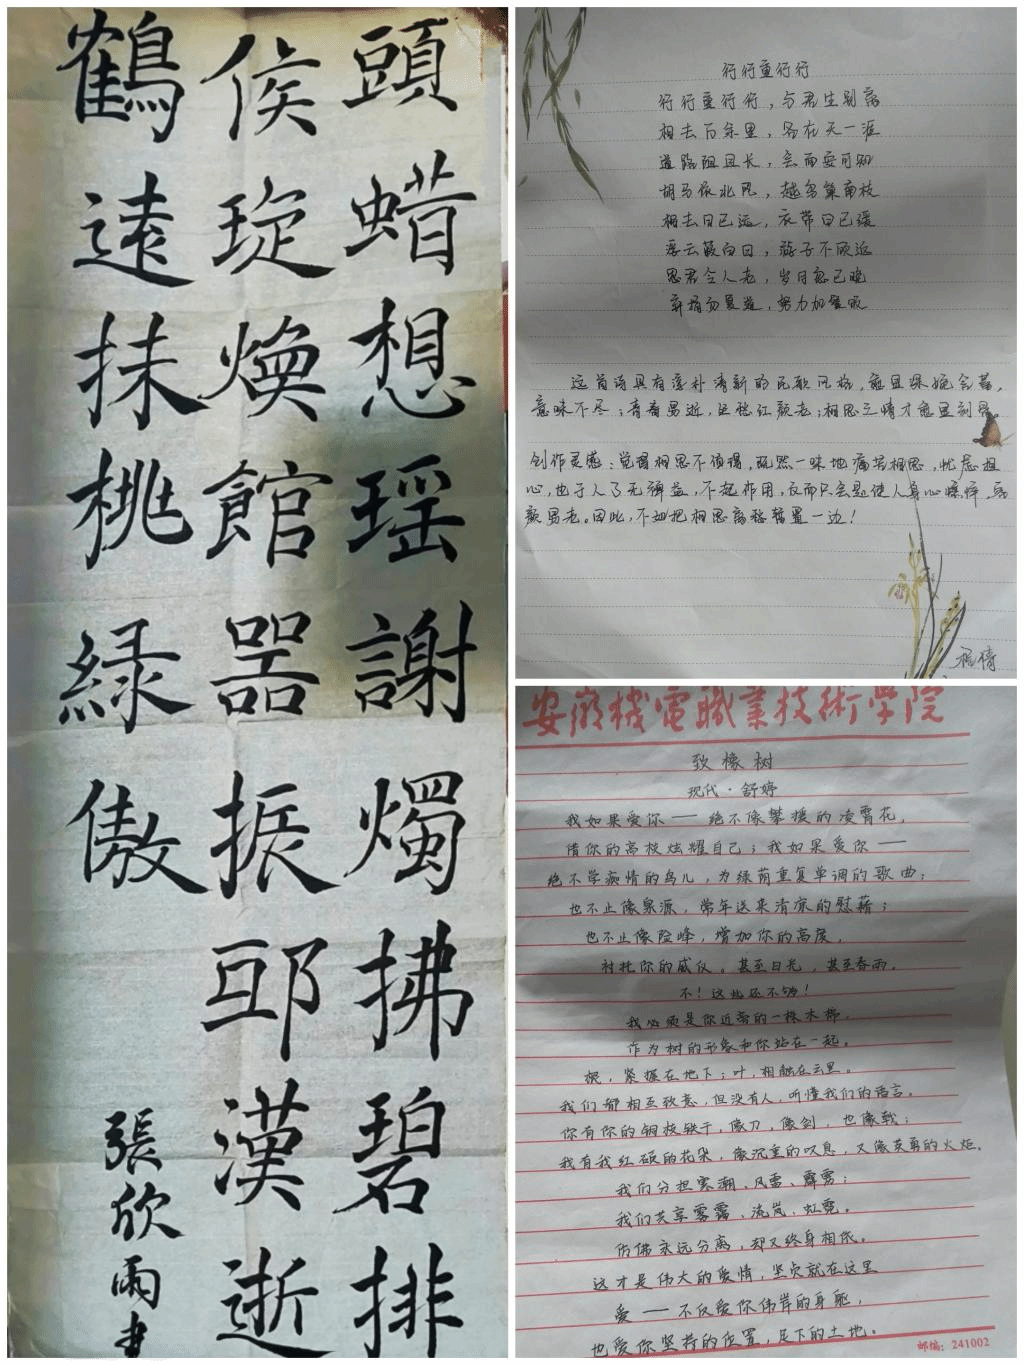 頭蜡想瑶謝燭拂碧排
侯琁煥館器振邛漢逝
鶴遠抹桃緑傲
張欣雨书
行行重行行
行行重行行，与君生别离
相去万余里，各在天一涯
道路阻且长，会面安可知
胡马依北风，越鸟巢南枝
相去日已远，衣带日已缓
浮云蔽白日，游子不顾返
思君令人老，岁月忽已晚
弃捐勿复道，努力加餐饭
这首诗具有淳朴清新的民歌风格，愈显深婉含蓄，
意味不尽；青春易逝，这愁红颜老；相思之情才愈显刻骨。
创作灵感：觉得相思不值得，既然一味地痛苦相思，忧虑担
心，也于人了无裨益，不起作用，反而只会是使人身心憔悴，容
颜易老。因此，不如把相思离愁暂置一边！
程倩
安徽機電職業技術學院
致橡树
现代·舒婷
我如果爱你——绝不像攀援的凌霄花，
借你的高枝炫耀自己；我如果爱你——
绝不学痴情的鸟儿，为绿荫重复单调的歌曲；
也不止像泉源，常年送来清凉的慰藉；
也不止像险峰，增加你的高度，
衬托你的威仪。甚至日光，甚至春雨。
不！这些还不够！
我必须是你近旁的一株木棉，
作为树的形象和你站在一起。
根，紧握在地下；叶，相触在云里。
我们都相互致意，但没有人，听懂我们的语言。
你有你的铜枝铁干，像刀，像剑，也像戟；
我有我红硕的花朵，像沉重的叹息，又像英勇的火炬。
我们分担寒潮、风雷、霹雳；
我们共享雾霭、流岚、虹霓。
仿佛永远分离，却又终身相依。
这才是伟大的爱情，坚贞就在这里
爱——不仅爱你伟岸的身躯，
也爱你坚持的位置，足下的土地。
邮编：241002